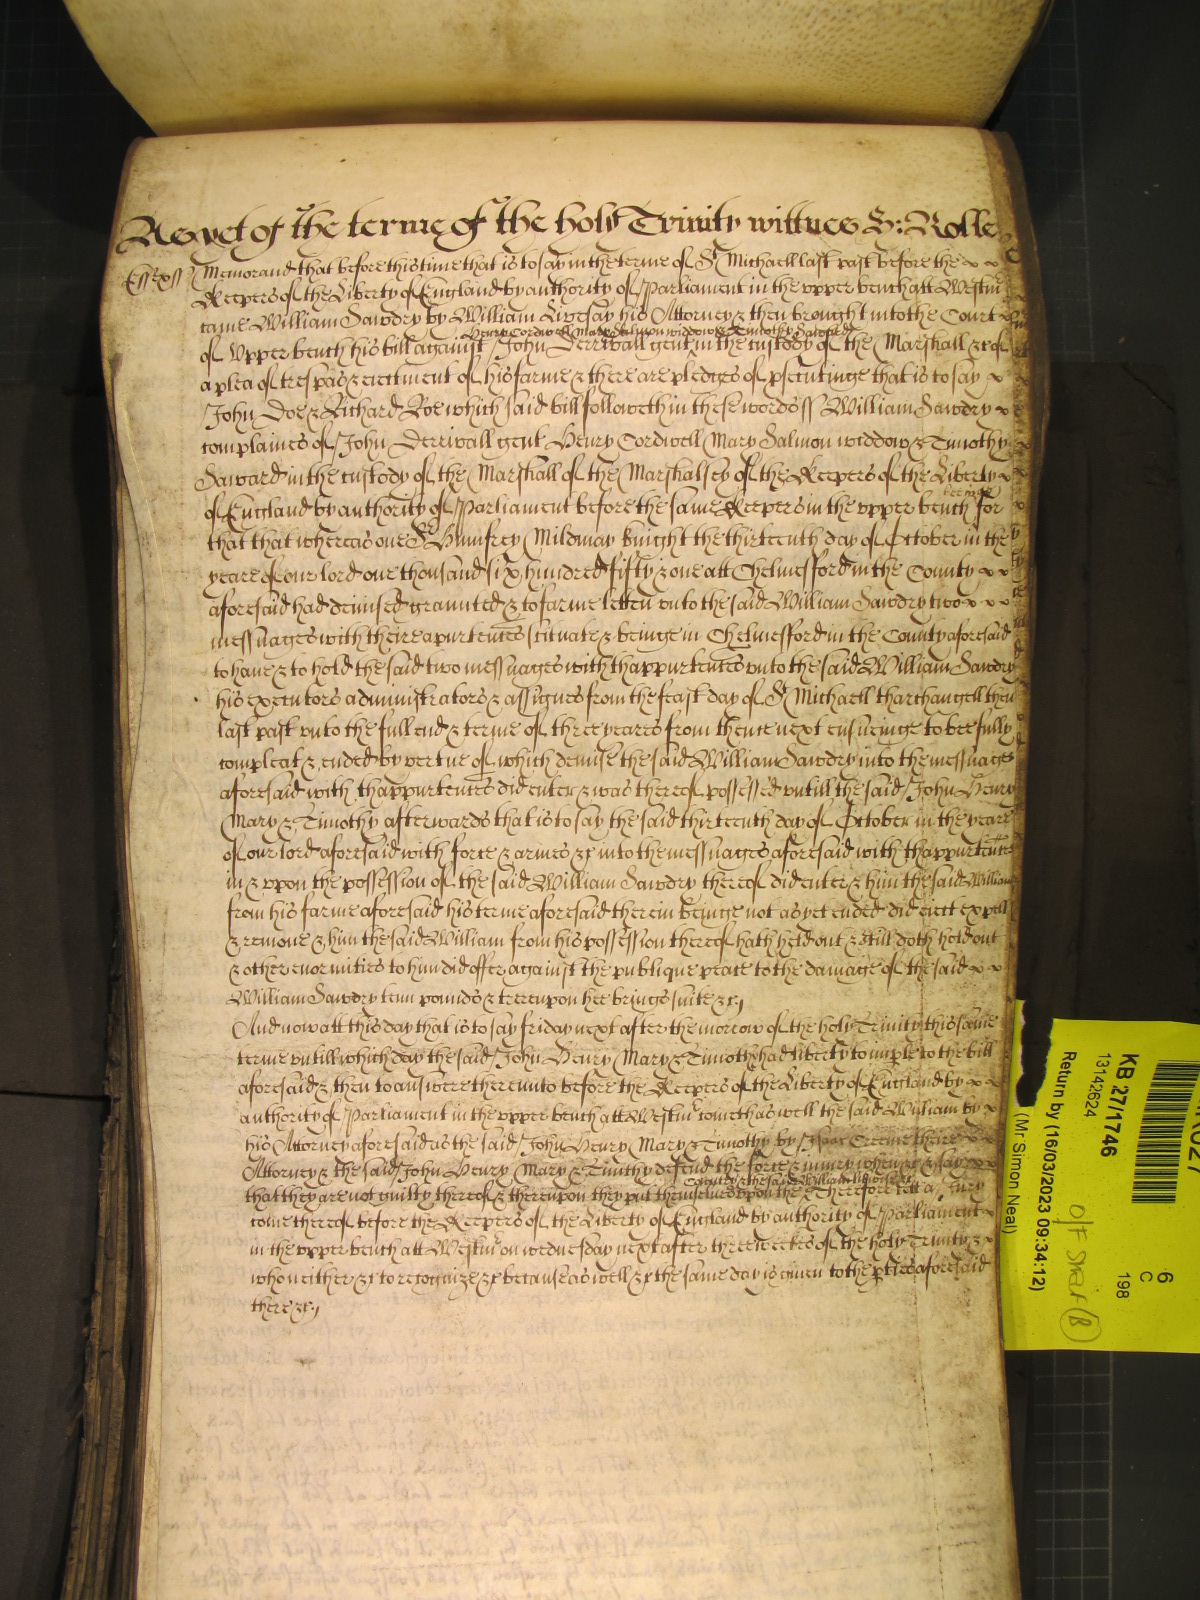 As yet of the terme of the holy Trinity wittnes H: Rolle
Essex ss Memorand that before this time that is to say in the terme of St Michaell last past before the
Keepers of the Liberty of England by authority of Parliament in the upper bench att Westmr
came William Sawdry by William Livesay his Attorney & then brought into the Court
Henry Cordwell Mary Salmon widdow & Timothy Saward
of Upper bench his bill against John Derriball gent in the custody of the Marshall &c of
a plea of trespas & eiectment of his farme & there are pledges of psecutinge that is to say
John Doe & Richard Roe which said bill followeth in these words ss William Sawdry
complaines of John Derriball gent Henry Cordwell Mary Salmon widdow & Timothy
Saward in the custody of the Marshall of the Marshalsey of the Keepers of the Liberty
beeinge
of England by authority of Parliament before the same Keepers in the upper bench for
that that whereas one Sr Humfrey Mildmay knight the thirteenth day of October in the
yeare of our lord one thousand six hundred fifty & one att Chelmesford in the County
aforesaid had demised graunted & to farme letten unto the said William Sawdry two
messuages with their apurtences scituate & beinge in Chelmesford in the County aforesaid
to have & to hold the said two messuages with thappurtences unto the said William Sawdry
his executors administrators & assignes from the feast day of St Michaell tharchangell then
last past unto the full end & terme of three yeares from thence next ensueinge to bee fully
compleat & ended by vertue of which demise the said William Sawdry into the messuages
aforesaid with thappurtences did enter & was thereof possessed untill the said John Henry
Mary & Timothy afterwards that is to say the said thirteenth day of October in the yeare
of our lord aforesaid with force & armes &c into the messuages aforesaid with thappurtences
in & upon the possession of the said William Sawdry thereof did enter & him the said William
from his farme aforesaid his terme aforesaid therein beinge not as yet ended did eiect expell
& remove & him the said William from his possession thereof hath held out & still doth hold out
& other enormities to him did offer against the publique peace to the damage of the said
William Sawdry tenn pounds & thereupon hee brings suite &c
And now att this day that is to say friday next after the morrow of the holy Trinity this same
terme untill which day the said John Henry Mary & Timothy had liberty to imple to the bill
aforesaid & then to answere thereunto before the Keepers of the Liberty of England by
authority of Parliament in the upper bench att Westmr cometh as well the said William by
his Attorney aforesaid as the said John Henry Mary & Timothy by Isaac Creeme theire
Attorney & the said John Henry Mary & Timothy defend the force & iniury when &c & say
Country & the said William likewise &c
that they are not guilty thereof & thereupon they put themselves upon the Therefore lett a Jury
come thereof before the Keepers of the Liberty of England by authority of Parliament
in the upper bench att Westmr on wednesday next after three weekes of the holy Trinity &
who neither &c to recognize &c because as well &c the same day is given to the pties aforesaid
there &c
KB 27/1746
13142624
Return by (16/03/2023 09:34:12)
(Mr Simon Neal)
6
C
198